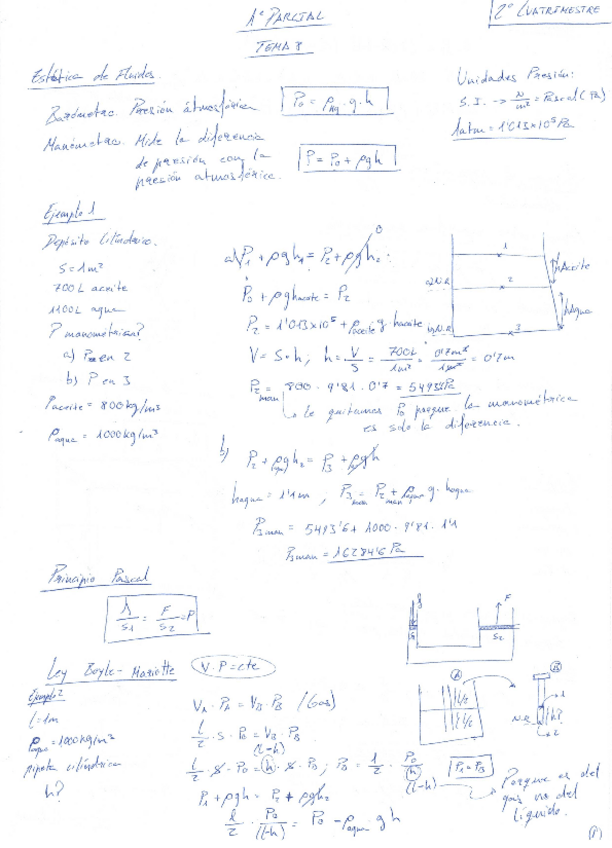 1º PARCIAL
2º CUATRIMESTRE
TEMA 8
Estática de Fluidos.
Barómetro. Presión átmosférica
P₀ = ρHg · g · h
Manómetro. Mide la diferencia
de presión con la
presión atmosférica.
P = P₀ + ρgh
Unidades Presión:
S.I. → N/m² = Pascal (Pa)
1atm = 1'013×10⁵ Pa
Ejemplo 1
Depósito cilíndrico.
S = 1m²
700L aceite
1100L agua
P manométrica?
a) P en 2
b) P en 3
ρaceite = 800 kg/m³
ρagua = 1000 kg/m³
a) P₁ + ρgh₁ = P₂ + ρgh₂ : 0
P₀ + ρghaceite = P₂
P₂ = 1'013×10⁵ + ρaceite g · haceite
V = S·h ; h = V/S = 700L/1m² = 0'7m³/1m² = 0'7m
P₂man = 800 · 9'81 · 0'7 = 5493'6Pa
Le quitamos P₀ porque la manométrica
es solo la diferencia.
1
2
3
hAceite
hAgua
b) P₂ + ρagua gh₂ = P₃ + ρgh
hagua = 1'1m , P₃man = P₂man + ρagua g · hagua
P₃man = 5493'6 + 1000 · 9'81 · 1'1
P₃man = 16284'6 Pa
Principio Pascal
f/S₁ = F/S₂ = P
F
S₂
Ley Boyle-Mariotte
V·P = cte
Ejemplo 2
l = 1m
ρagua = 1000 kg/m³
pipeta cilíndrica
h?
VA · PA = VB · PB (Gas)
l/2 · S · P₀ = VB · PB
(l-h)
l/2 · S · P₀ = h · S · PB ; PB = l/2 · P₀/h
(l-h)
P₁ = PB
P₁ + ρgh = P₂ + ρgh₂
l/2 · P₀/(l-h) = P₀ - ρagua gh
A
B
l/2
l/2
N.R.
1
2
Porque es del
gas no del
líquido.
(1)